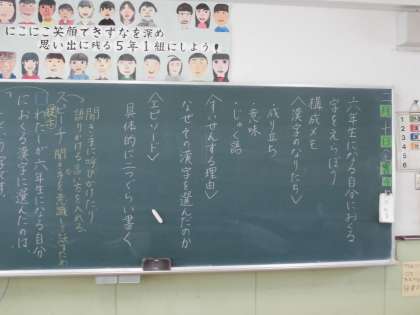 にこにこ笑顔できずなを深め
思い出に残る5年1組にしよう!
六年生になる自分におくる
字をえらぼう
構成メモ
<漢字のなりたち>
・成り立ち
・意味
・じゅく語
<すいせんする理由>
なぜその漢字を選んだのか
<エピソード>
具体的に二つぐらい書く。
聞き手に呼びかけたり
語りかける言い方を入れる
スピーチ
わたしが六年生になる自分
におくる漢字に選んだのは、
1
2
3
4
5
6